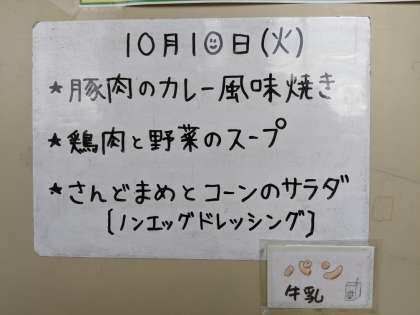 10月10日(火)
★豚肉のカレー風味焼き
★鶏肉と野菜のスープ
★さんどまめとコーンのサラダ
[ノンエッグドレッシング]
パン
牛乳